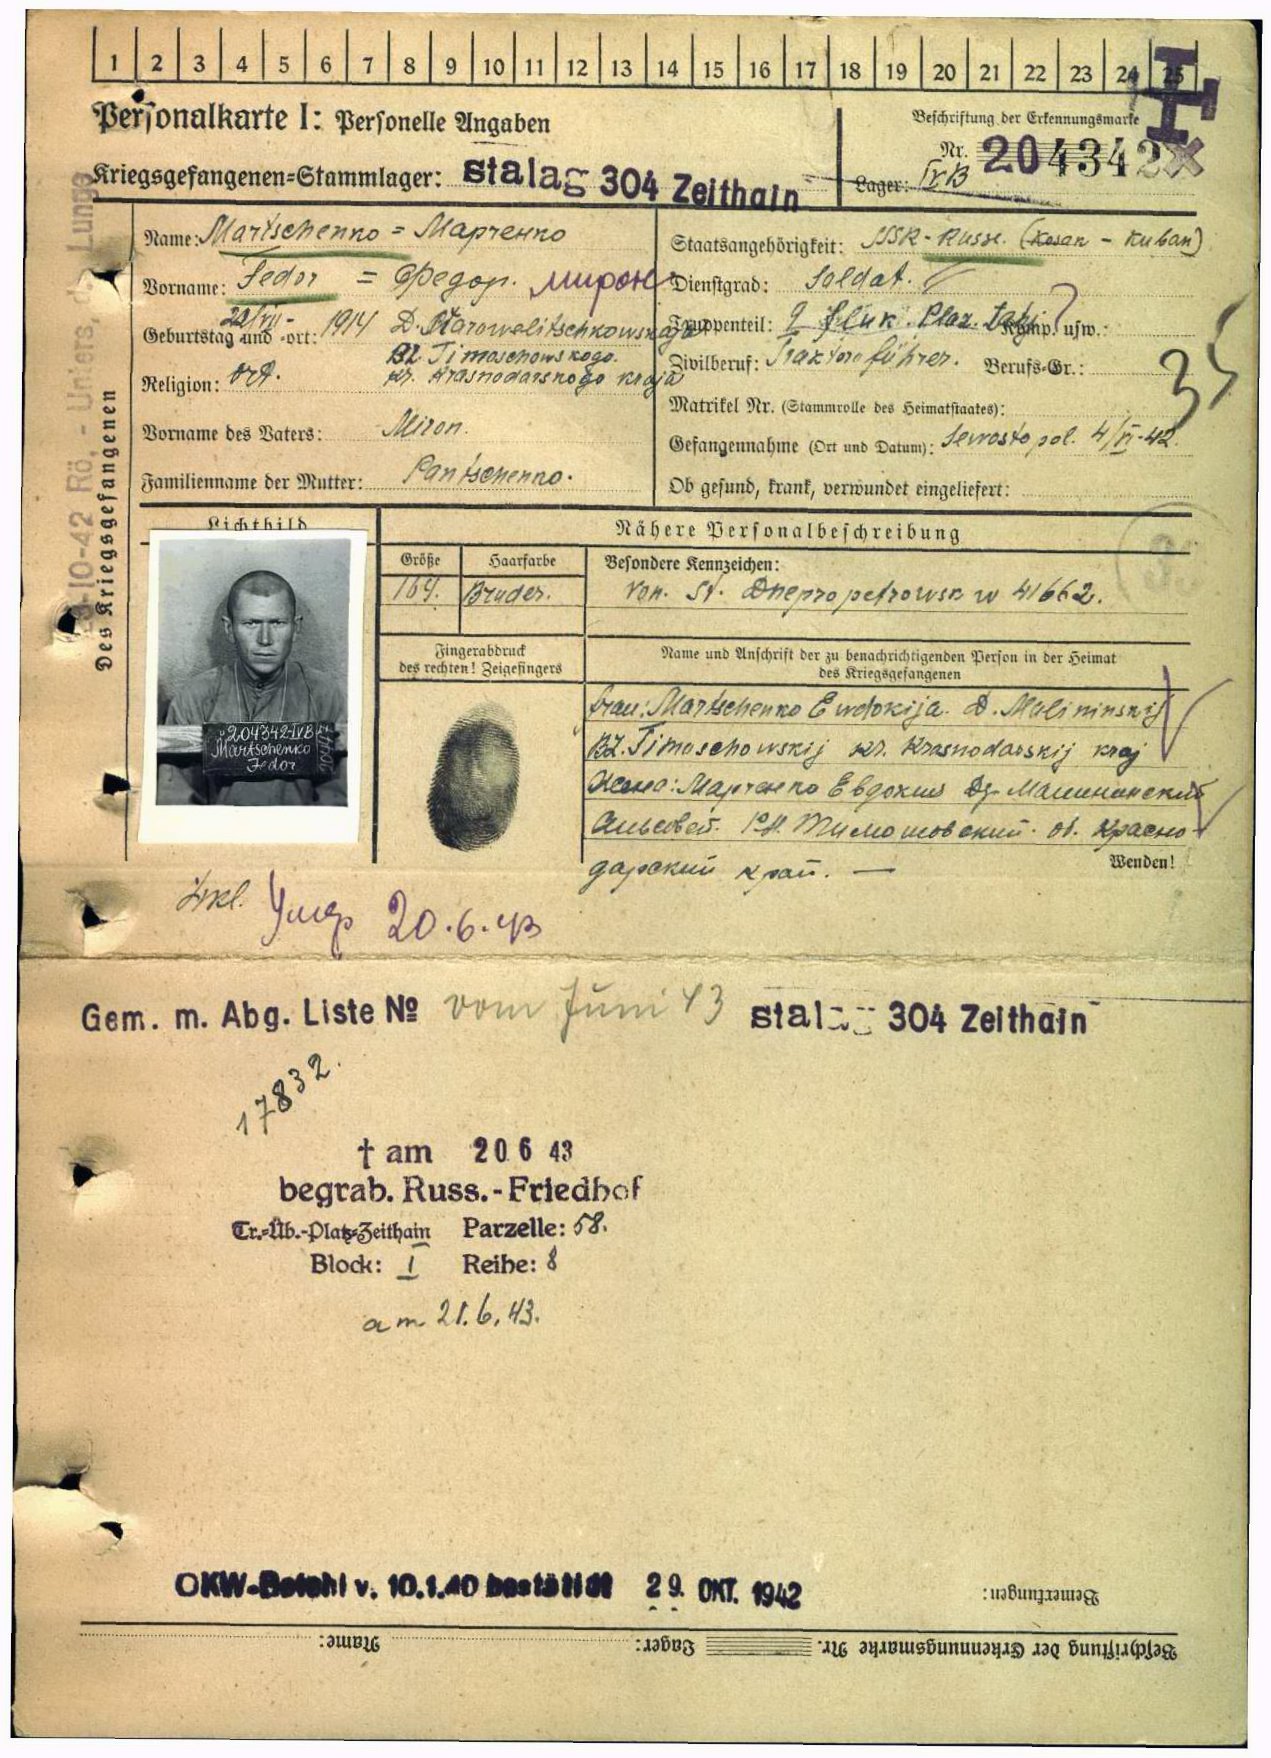 1 2 3 4 5 6 7 8 9 10 11 12 13 14 15 16 17 18 19 20 21 22 23 24 25
Personalkarte I: Personelle Angaben
Beschriftung der Erkennungsmarke
Nr. 204342
Kriegsgefangenen-Stammlager: Stalag 304 Zeithain
Lager: IVB
Des Kriegsgefangenen
Name: Martschenko = Марченко
Vorname: Fedor = Федор. мирон
Geburtstag und -ort: 1914 D.
Bz. Timoschowskogo.
Religion: ort. kr. Krasnodarskogo kraja
Vorname des Vaters: Miron.
Familienname der Mutter: Pantschenko.
Staatsangehörigkeit: SSR - Russe. (Kosak - Kuban)
Dienstgrad: Soldat.
Truppenteil: Komp. usw.:
Zivilberuf: Traktorführer. Berufs-Gr.:
35
Matrikel Nr. (Stammrolle des Heimatstaates):
Gefangennahme (Ort und Datum): Sewostopol. 4/VI-42.
Ob gesund, krank, verwundet eingeliefert:
Lichtbild
204342-IVB
Martschenko
Fedor
Nähere Personalbeschreibung
Größe Haarfarbe Besondere Kennzeichen:
164. von. St. Dnepropetrowsk w 41662.
Fingerabdruck
des rechten! Zeigefingers
Name und Anschrift der zu benachrichtigenden Person in der Heimat
des Kriegsgefangenen
Frau: Martschenko Ewdokija. D. Malininskij
Bz. Timoschowskij kr. Krasnodarskij kraj
Жена: Марченко Евдокия Др. Малининский
Тимошовский об. Красно-
дарский край. —
Wenden!
Умер 20.6.43
Gem. m. Abg. Liste № vom Juni 43 Stalag 304 Zeithain
17832.
† am 20 6 43
begrab. Russ.-Friedhof
Tr.-Üb.-Platz-Zeithain Parzelle: 58.
Block: I Reihe: 8
am 21.6.43.
OKW-Befehl v. 10.1.40 bestätigt 29. OKT. 1942
Bemerkungen:
Beschriftung der Erkennungsmarke Nr. Lager: Name: